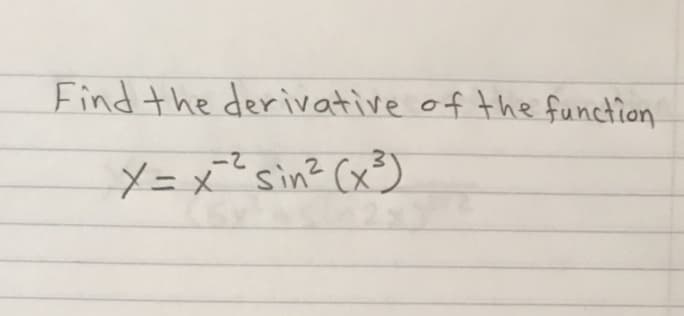 Find the derivative of the function
y = x⁻² sin² (x³)